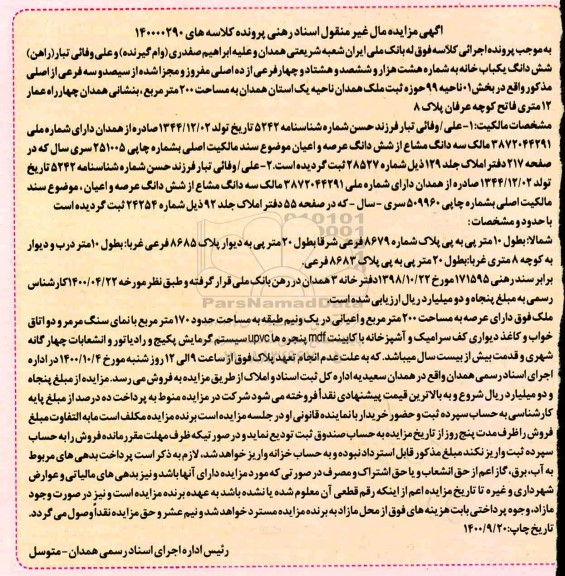 آگهی مزایده مال غیر منقول اسناد رهنی پرونده کلاسه های ۱۴۰۰۰۰۲۹۰
به موجب پرونده اجرائی کلاسه فوق له بانک ملی ایران شعبه شریعتی همدان و علیه ابراهیم صفدری (وام گیرنده) و علی وفائی تبار (راهن)
شش دانگ یکباب خانه به شماره هشت هزار و ششصد و هشتاد و چهار فرعی از ده اصلی مفروز و مجزا شده از سیصد و سه فرعی از اصلی
مذکور واقع در بخش ۰۱ ناحیه ۹۹ حوزه ثبت ملک همدان ناحیه یک استان همدان به مساحت ۲۰۰ متر مربع، بنشانی همدان چهارراه عمار
۱۲ متری فاتح کوچه عرفان پلاک ۸
مشخصات مالکیت: ۱-علی/ وفائی تبار فرزند حسن شماره شناسنامه ۵۲۴۲ تاریخ تولد ۱۳۴۴/۱۲/۰۲ صادره از همدان دارای شماره ملی
۳۸۷۲۰۴۴۲۹۱ مالک سه دانگ مشاع از شش دانگ عرصه و اعیان موضوع سند مالکیت اصلی بشماره چاپی ۲۵۱۰۰۵ سری سال که در
صفحه ۲۱۷ دفتر املاک جلد ۱۲۹ ذیل شماره ۲۸۵۲۷ ثبت گردیده است. ۲-علی/ وفائی تبار فرزند حسن شماره شناسنامه ۵۲۴۲ تاریخ
تولد ۱۳۴۴/۱۲/۰۲ صادره از همدان دارای شماره ملی ۳۸۷۲۰۴۴۲۹۱ مالک سه دانگ مشاع از شش دانگ عرصه و اعیان، موضوع سند
مالکیت اصلی بشماره چاپی ۵۰۹۹۶۰ سری - سال - که در صفحه ۵۵ دفتر املاک جلد ۹۲ ذیل شماره ۲۴۲۵۴ ثبت گردیده است
با حدود و مشخصات:
شمالا: بطول ۱۰ متر پی به پی پلاک شماره ۸۶۷۹ فرعی شرقا بطول ۲۰ متر پی به دیوار پلاک ۸۶۸۵ فرعی غربا: بطول ۱۰ متر درب و دیوار
به کوچه ۸ متری غربا: بطول ۲۰ متر پی به پی پلاک ۸۶۸۳ فرعی.
برابر سند رهنی ۱۷۱۵۹۵ مورخ ۱۳۹۸/۱۰/۲۲ دفتر خانه ۳ همدان در رهن بانک ملی قرار گرفته و طبق نظر مورخه ۱۴۰۰/۰۴/۲۲ کارشناس
رسمی به مبلغ پنجاه و دو میلیارد ریال ارزیابی شده است.
ملک فوق دارای عرصه به مساحت ۲۰۰ متر مربع و اعیانی در یک و نیم طبقه به مساحت حدود ۱۷۰ متر مربع با نمای سنگ مرمر و دو اتاق
خواب و کاغذ دیواری کف سرامیک و آشپزخانه با کابینت mdf پنجره ها upvc سیستم گرمایش پکیج و رادیاتور و انشعابات چهار گانه
شهری و قدمت بیش از بیست سال میباشد. که به علت عدم انجام تعهد پلاک فوق از ساعت ۹ الی ۱۲ روز شنبه مورخ ۱۴۰۰/۱۰/۴ در اداره
اجرای اسناد رسمی همدان واقع در همدان سعیدیه اداره کل ثبت اسناد و املاک از طریق مزایده به فروش می رسد. مزایده از مبلغ پنجاه
و دو میلیارد ریال شروع و به بالاترین قیمت پیشنهادی نقداً فروخته می شود شرکت در مزایده منوط به پرداخت ده درصد از مبلغ پایه
کارشناسی به حساب سپرده ثبت و حضور خریدار یا نماینده قانونی او در جلسه مزایده است برنده مزایده مکلف است مابه التفاوت مبلغ
فروش را ظرف مدت پنج روز از تاریخ مزایده به حساب صندوق ثبت تودیع نماید و در صورتیکه ظرف مهلت مقرر مانده فروش را به حساب
سپرده ثبت واریز نکند مبلغ مذکور قابل استرداد نبوده و به حساب خزانه واریز خواهد شد، لازم به ذکر است پرداخت بدهی های مربوط
به آب، برق، گاز اعم از حق انشعاب و یا حق اشتراک و مصرف در صورتی که مورد مزایده دارای آنها باشد و نیز بدهی های مالیاتی و عوارض
شهرداری و غیره تا تاریخ مزایده اعم از اینکه رقم قطعی آن معلوم شده یا نشده باشد به عهده برنده مزایده است و نیز در صورت وجود
مازاد، وجوه پرداختی بابت هزینه های فوق از محل مازاد به برنده مزایده مسترد خواهد شد و نیم عشر و حق مزایده نقداً وصول می گردد.
تاریخ چاپ: ۱۴۰۰/۹/۲۰
رئیس اداره اجرای اسناد رسمی همدان - متوسل
ParsNamadData